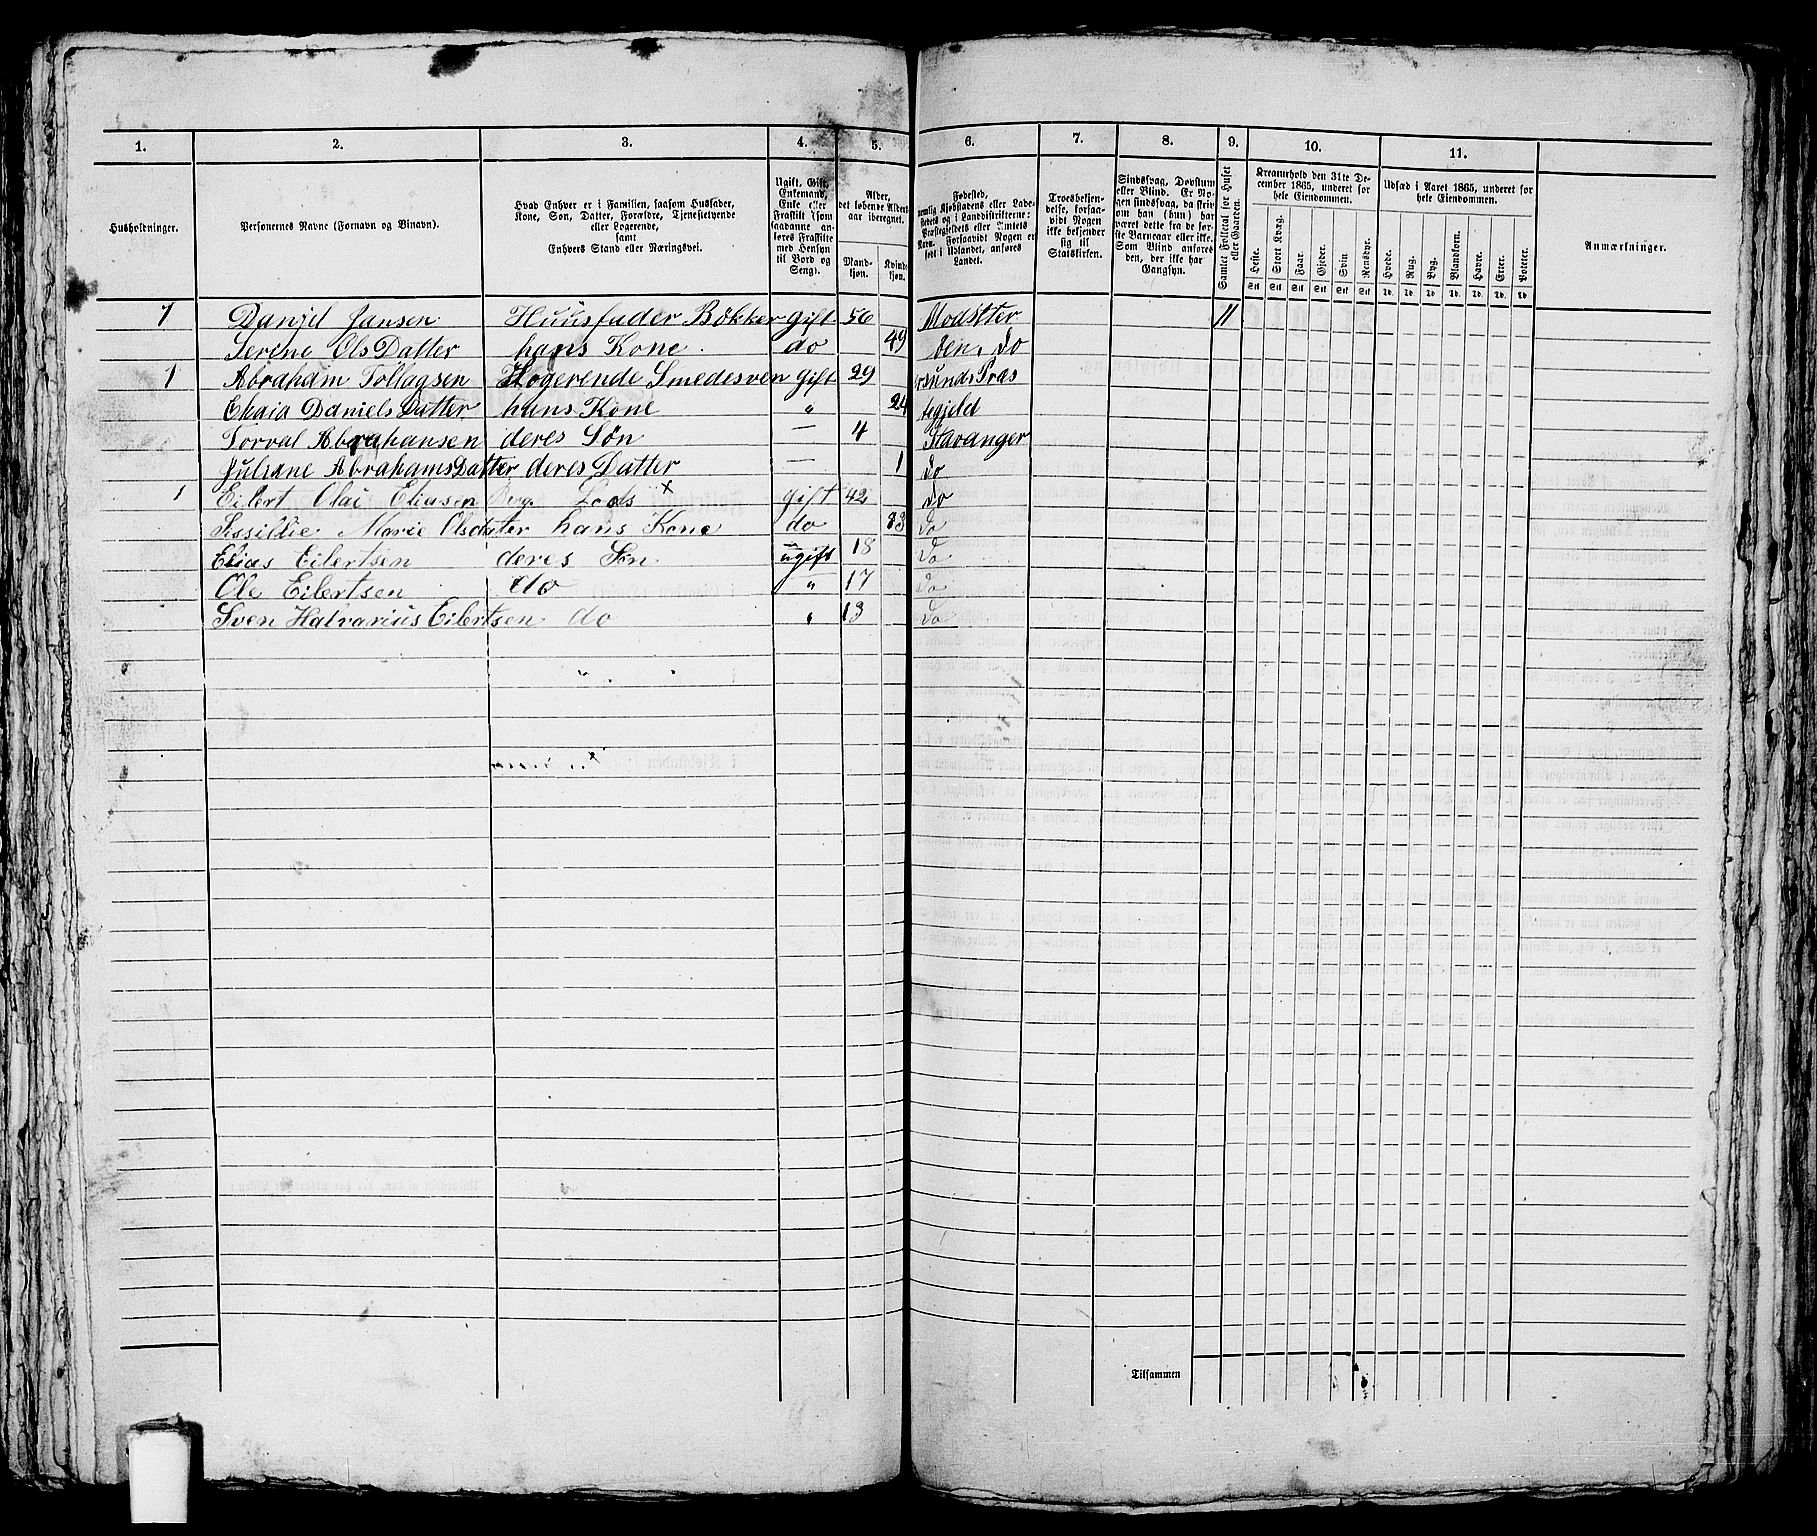 1. 2. 3. 4. 5. 6. 7. 8. 9. 10. 11.
Husholdninger.
Personernes Navne (Fornavn og Binavn).
Hvad Enhver er i Familien, saasom Husfader,
Kone, Søn, Datter, Forældre, Tjenestetyende
eller Logerende,
samt
Enhvers Stand eller Næringsvei.
Ugift, Gift,
Enkemand,
Enke eller
Fraskilt (som
saadanne an-
føres Fraskilte
med Hensyn
til Bord og
Seng).
Alder,
det løbende Alders-
aar iberegnet.
Mand-
kjøn.
Kvind
kjøn.
Fødested,
nemlig Kjøbstadens eller Lade-
stedets og i Landdistrikterne:
Præstegjeldets eller Amtets
Navn. Forsaavidt Nogen er
født i Udlandet, anføres
Landet.
Troesbekjen-
delse, forsaa-
vidt Nogen
ikke bekjender
sig til
Statskirken.
Sindssvag, Døvstum
eller Blind. Er No-
gen sindssvag, da skriv
om han (hun) har
været dette fra de før-
ste Barneaar eller ikke.
Som Blind anføres
de, der ikke har
Gangsyn.
Samlet Folketal for Huset
eller Gaarden.
Kreaturhold den 31te De-
cember 1865, underet for
hele Eiendommen.
Heste. Stort Kvæg. Faar. Gjeder. Svin. Rensdyr.
Stk Stk Stk Stk Stk Stk
Udsæd i Aaret 1865, underet for
hele Eiendommen.
Hvede. Rug. Byg. Blandkorn. Havre. Erter. Poteter.
Td. Td. Td. Td. Td. Td. Td.
Anmærkninger.
1 Daniel Jansen Huusfader Bøkker gift 56 11
Serine Ols Datter hans Kone do 49 Do
1 Abraham Tollagsen Logerende Smedesven gift 29 sunds Præs
Daniels Datter hans Kone " 24 tegjeld
Torval Abrahansen deres Søn — 4 Stavanger
Juliane Abrahams Datter deres Datter — 1 Do
1 Eilert Olai Eliasen Berg Lods × gift 42 Do
Sissillie Marie Olsdatter hans Kone do 33 Do
Elias Eilertsen deres Søn ugift 18 Do
Ole Eilertsen do " 17 Do
Sven Halvarius Eilertsen do " 13 Do
Tilsammen